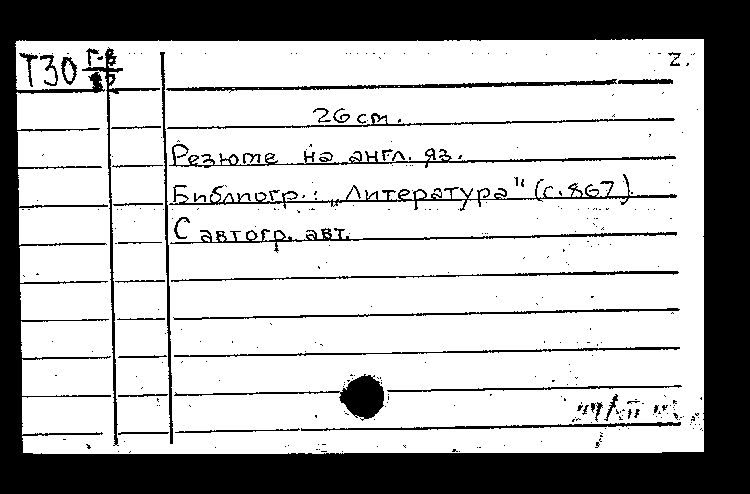 Т30 Г-В
2.
26 см.
Резюме на англ. яз.
Библиогр.: „Литература" (с. 867)
С автогр. авт.